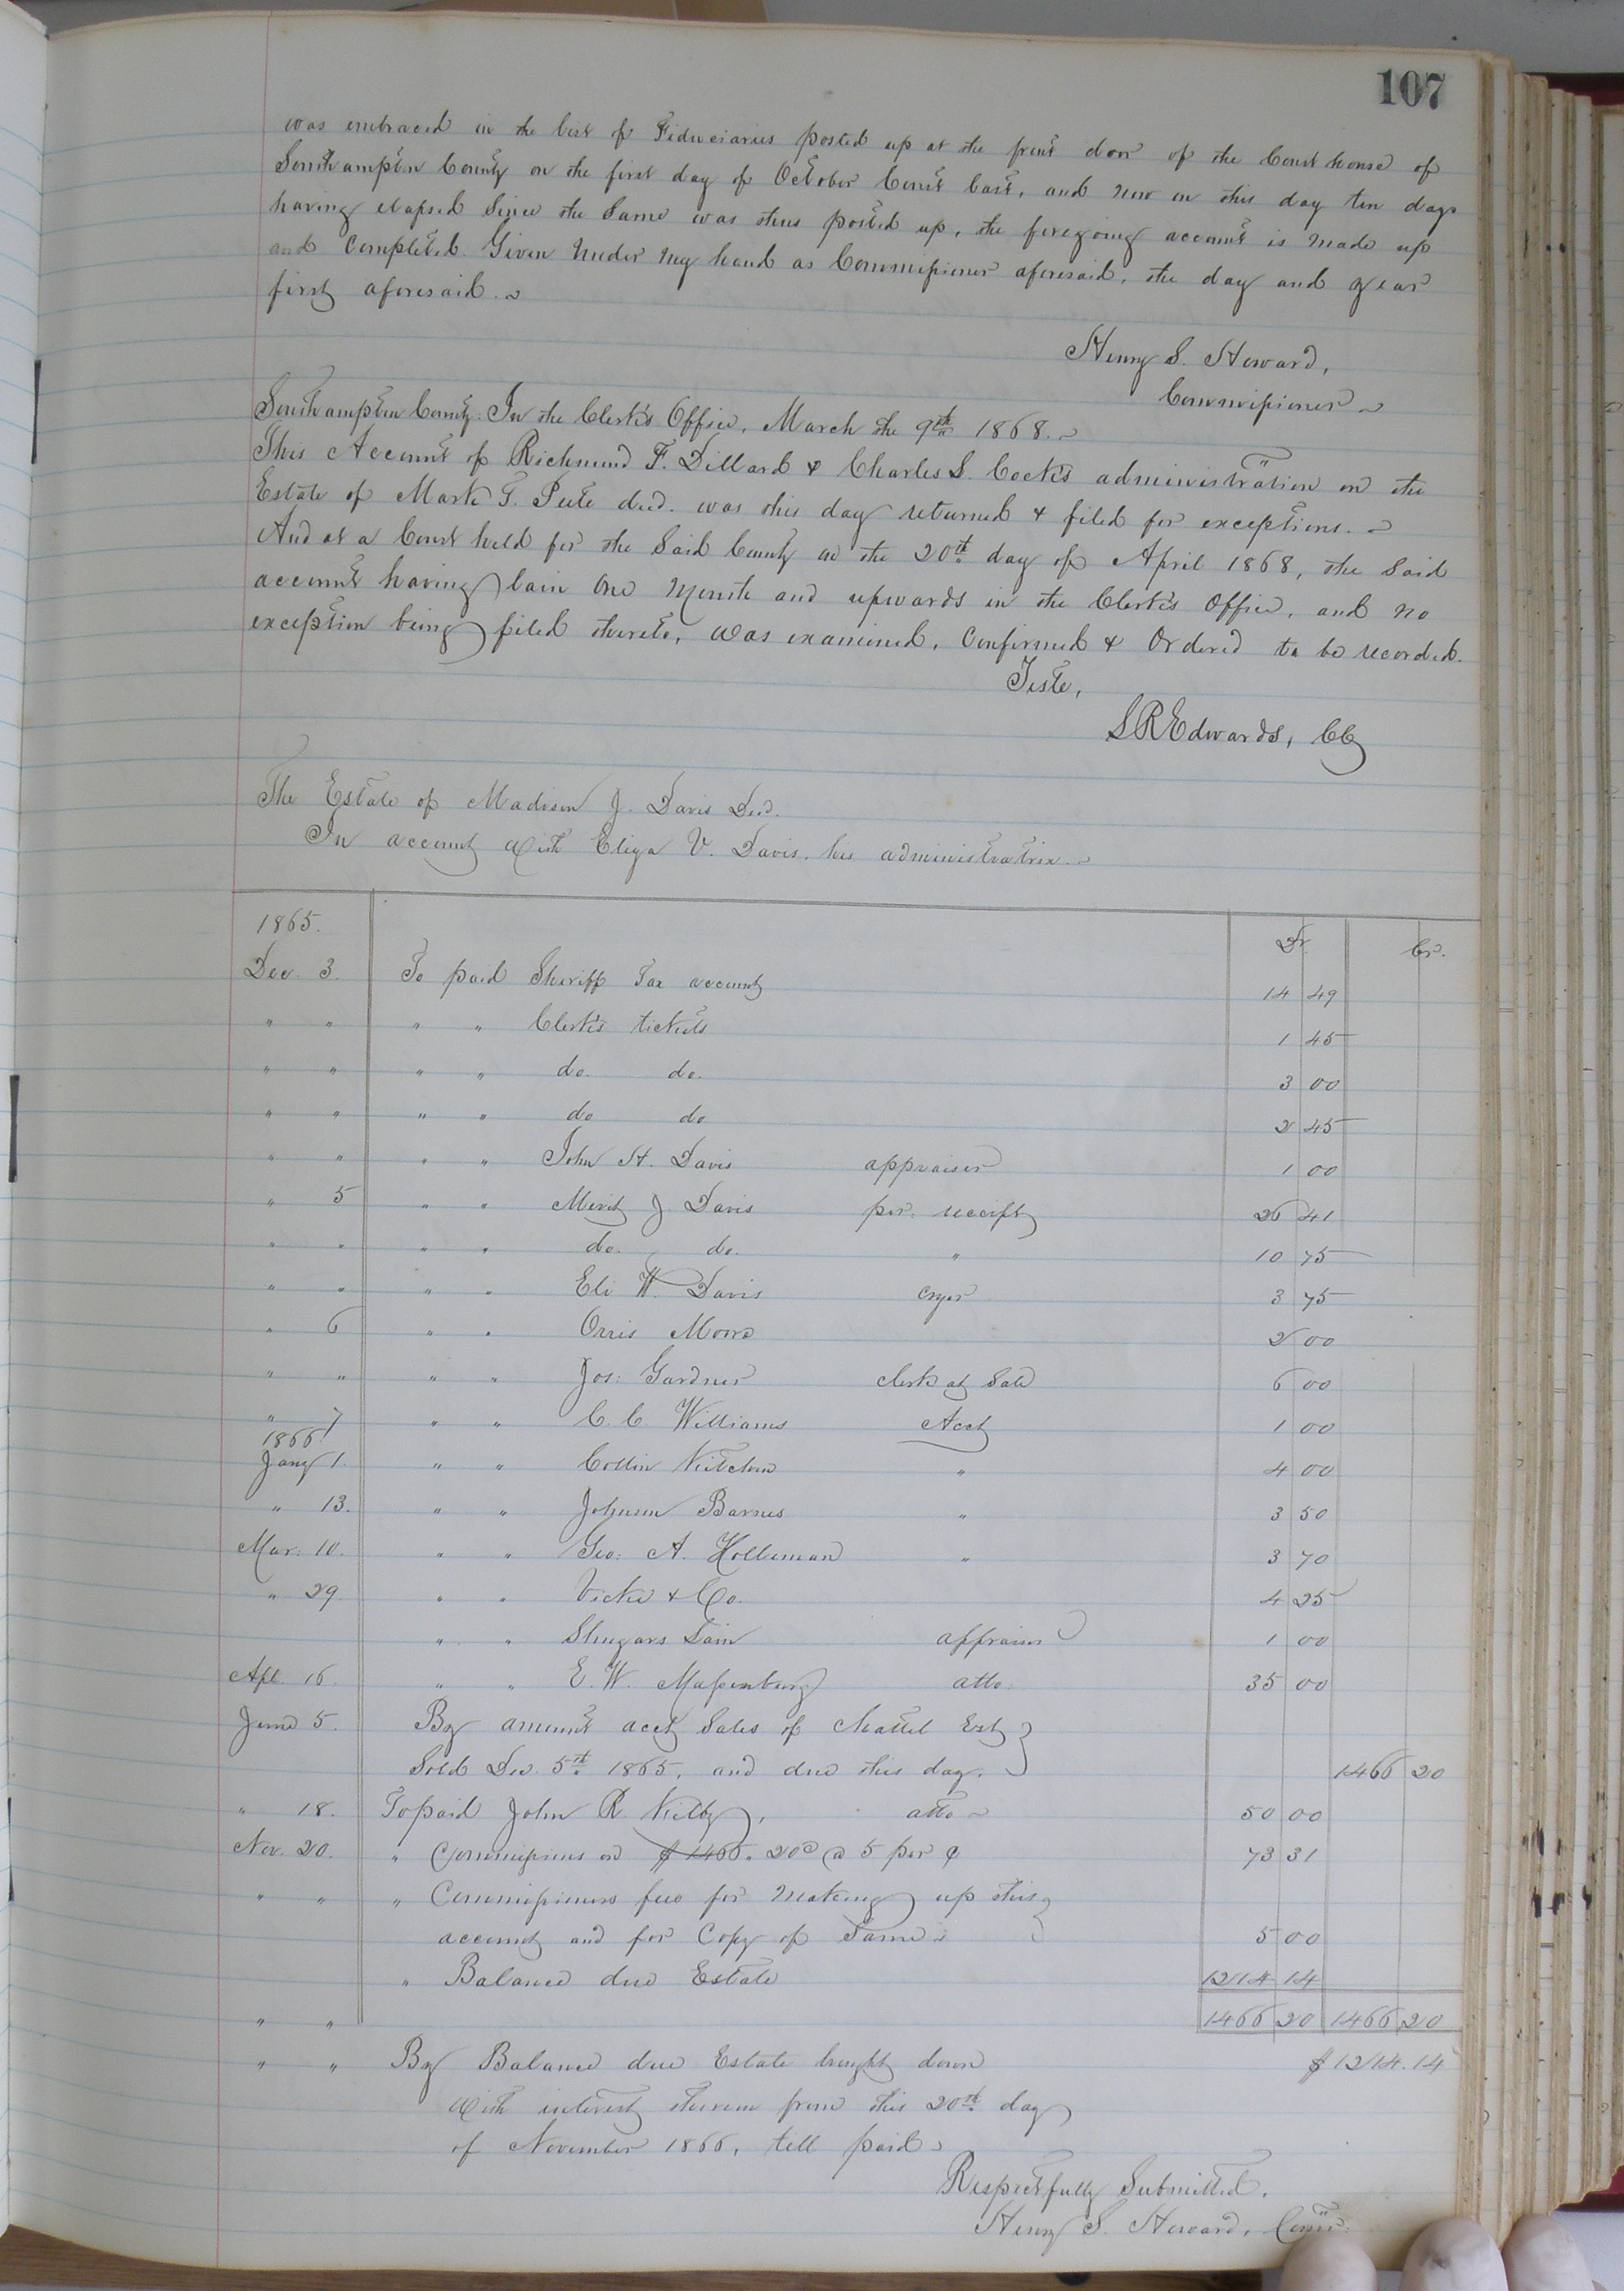 107
was embraced in the list of Fiduciaries posted up at the front door of the Court house of
Southampton County on the first day of October Court last, and now on this day ten days
having elapsed Since the Same was thus posted up, the foregoing account is made up
and Completed. Given under my hand as Commissioner aforesaid, the day and year
first aforesaid.
Henry S. Howard,
Commissioner
Southampton County: In the Clerk's Office, March the 9th 1868.
This Account of Richmund F. Dillard & Charles S. Cock's administration on the
Estate of Mark T. Peete decd. was this day returned & filed for exceptions.
And at a Court held for the Said County on the 20th day of April 1868, the Said
account having lain One Month and upwards in the Clerk's Office, and no
exception being filed thereto, was examined, Confirmed & Ordered to be recorded.
Teste,
S R Edwards, CC
The Estate of Madison J. Davis Decd.
In account with Eliza V. Davis, his administratrix.
1865. Dr. Cr.
Dec. 3. To paid Sheriff Tax account 14 49
" " " " Clerk's tickets 1 45
" " " " do. do. 3 00
" " " " do do 2 45
" " " " John H. Davis appraiser 1 00
" 5 " " Merit J. Davis per. receipt 26 41
" " " " do. do. " 10 75
" " " " Eli W. Davis cryer 3 75
" 6 " " Orris Moore 2 00
" " " " Jos: Gardner clerk at Sale 6 00
" 7 " " C. C. Williams Acct 1 00
1866
Jany 1. " " Collin Kitchen " 4 00
" 13. " " Johnson Barnes " 3 50
Mar: 10. " " Geo: A. Holleman " 3 70
" 29. " " Vick & Co. 4 25
" " Shugars Lain appraiser 1 00
Apl. 16. " " E. W. Massenburg atto: 35 00
June 5. By amount acct Sales of chattel Est
Sold Dec. 5th 1865, and due this day. 1466 20
" 18. To paid John R. Kilby, atto 50 00
Nov. 20. " Commissions on $1466.20c @ 5 per c 73 31
" " " Commissioners fees for making up this
account and for Copy of Same 5 00
" Balance due Estate 1214 14
" " 1466 20 1466 20
" " By Balance due Estate brought down $1214.14
with interest thereon from this 20th day
of November 1866, till paid
Respectfully Submitted,
Henry S. Howard, Comr.